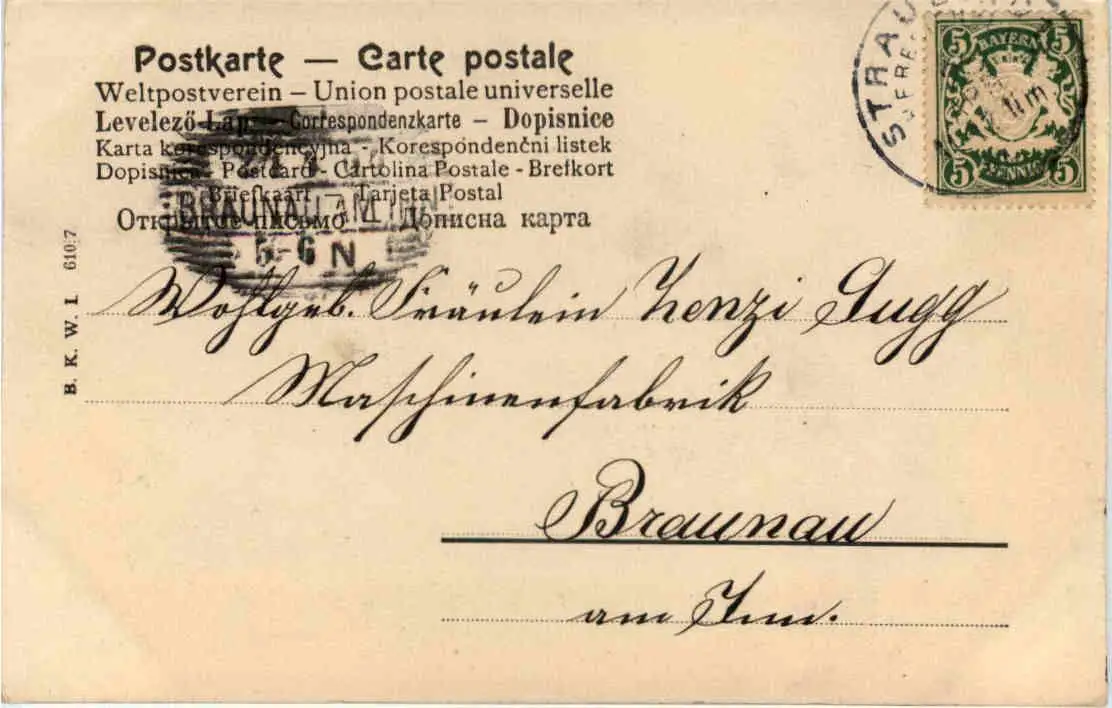 Postkarte — Carte postale
Weltpostverein – Union postale universelle
Levelező-Lap – Correspondenzkarte – Dopisnice
Karta korespondencyjna - Korespondenční listek
Dopisnica - Postcard - Cartolina Postale - Brefkort
Briefkaart — Tarjeta Postal
Открытое письмо Дописна карта
BRAUNAU AM INN
5-6 N
STRAUB
5 BAYERN 5
5 PFENNIG 5
B. K. W. I. 610/7
Wohlgeb. Fräulein Zenzi Gugg
Maschinenfabrik
Braunau
am Inn.